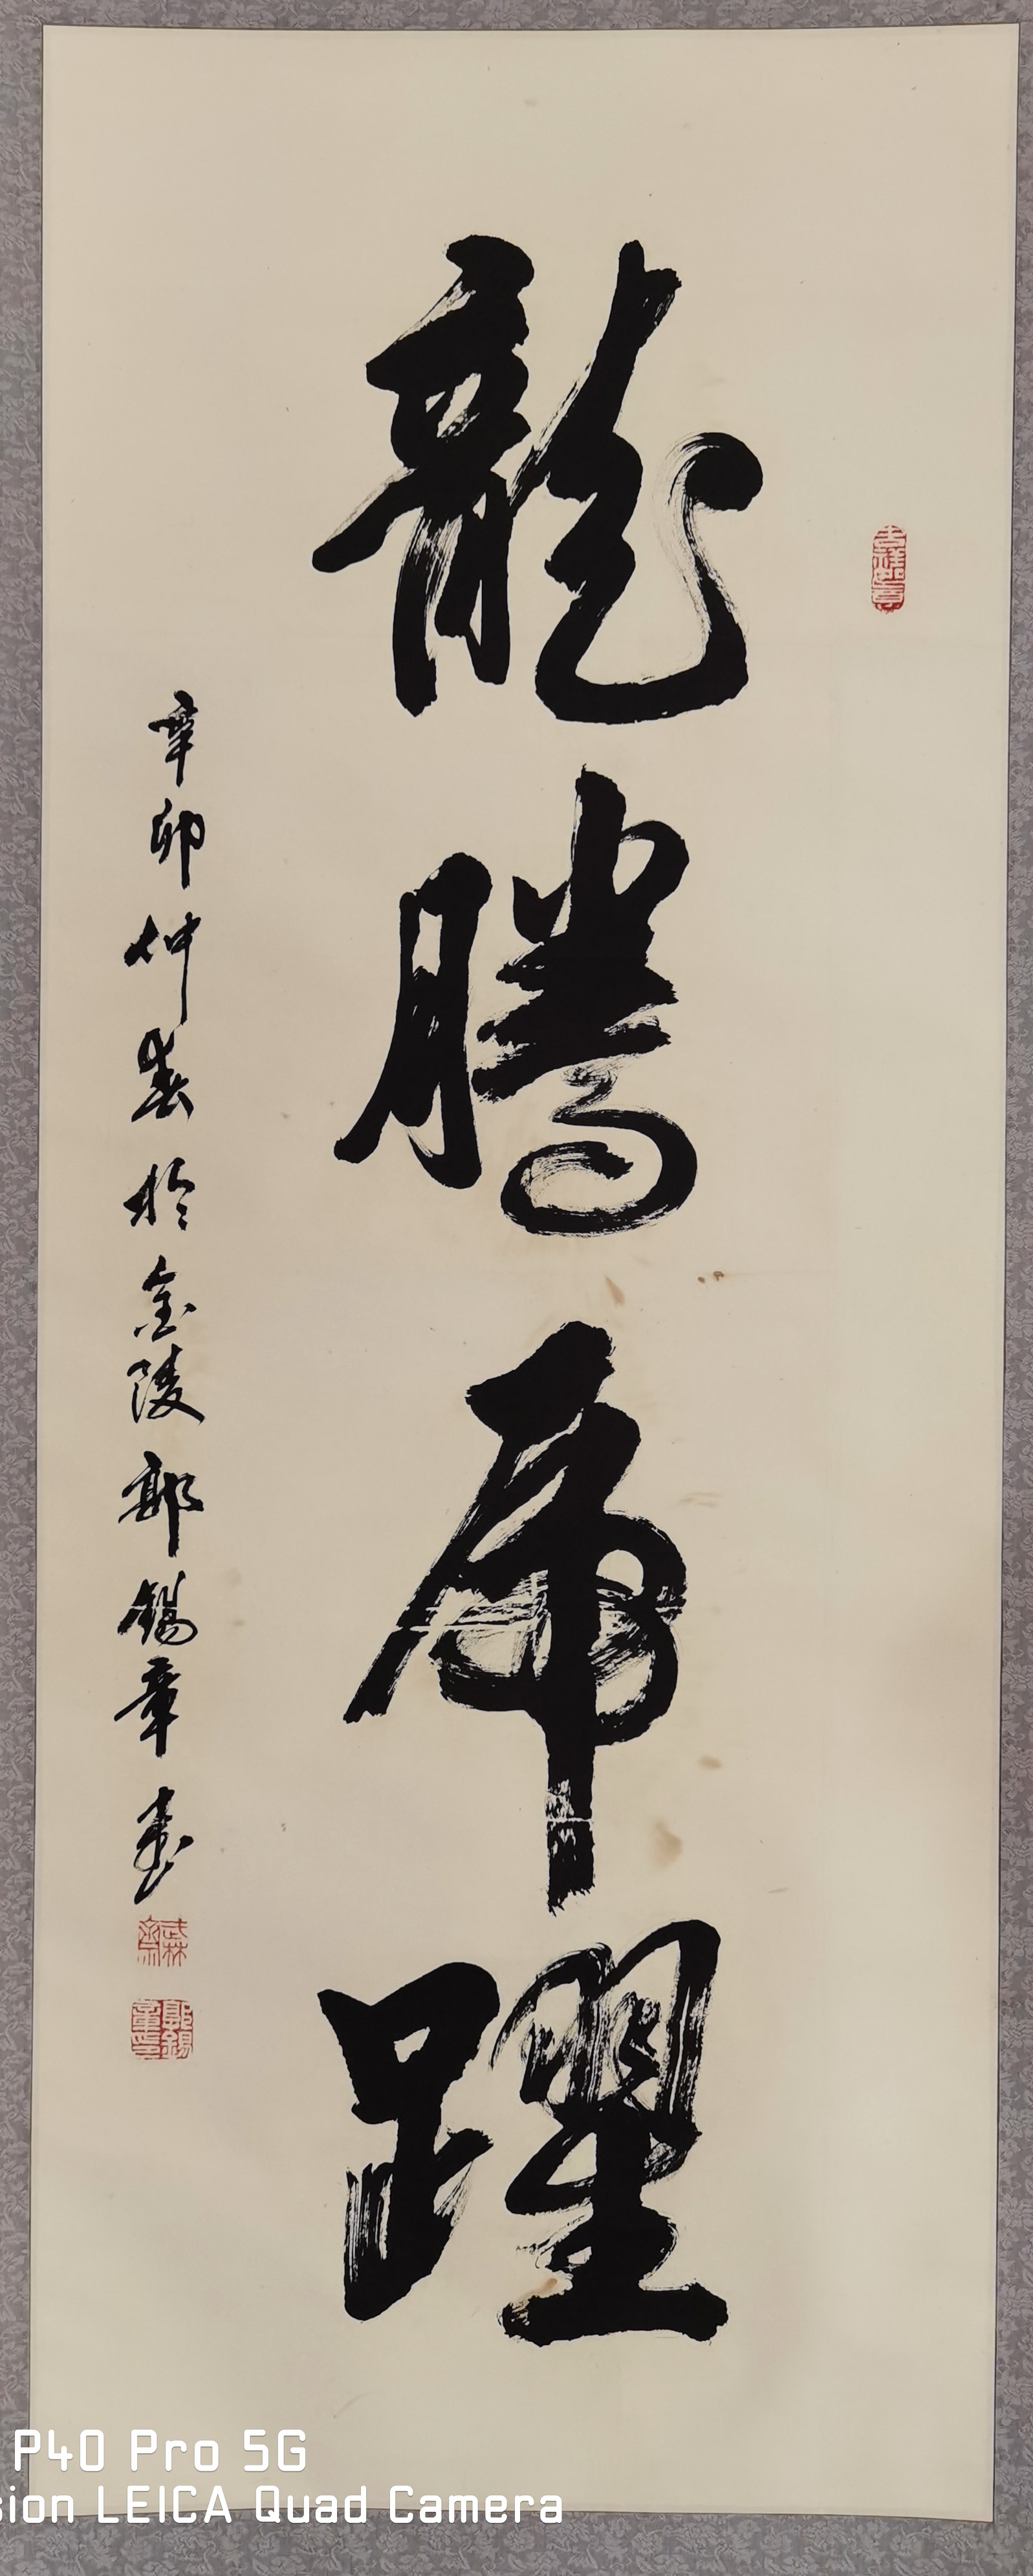 龍騰虎躍
辛卯仲春於金陵郭錫章書
郭錫章印
P40 Pro 5G
sion LEICA Quad Camera